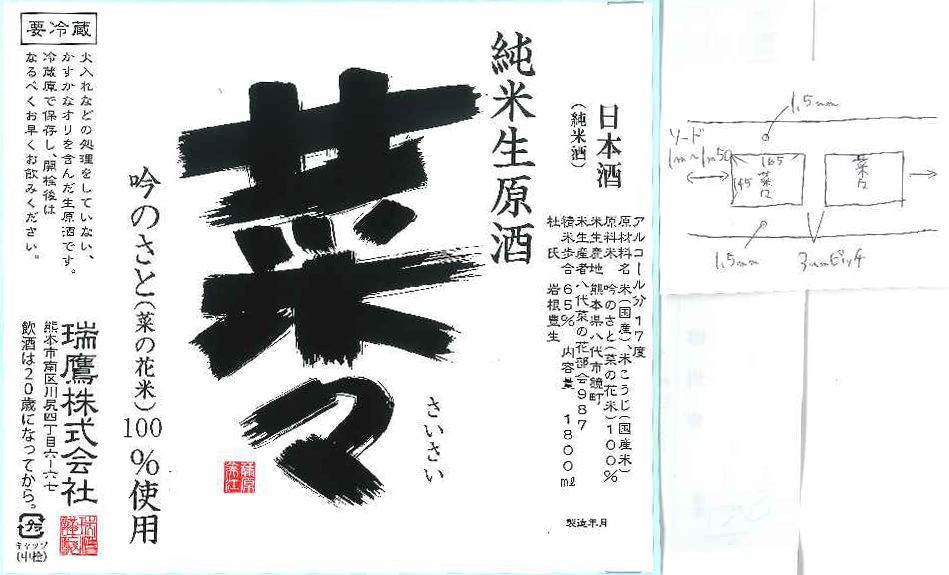 純米生原酒
日本酒
(純米酒)
アルコール分17度
原材料名 米(国産)、米こうじ(国産米)
原料米 吟のさと(菜の花米)100%
米生産地 熊本県八代市鏡町
米生産者 八代菜の花部会987
精米歩合 65% 内容量 1800㎖
杜氏 岩根豊生
製造年月
菜々
さいさい
吟のさと(菜の花米)100%使用
要冷蔵
火入れなどの処理をしていない、
かすかなオリを含んだ生原酒です。
冷蔵庫で保存し、開栓後は
なるべくお早くお飲みください。
瑞鷹株式会社
熊本市南区川尻四丁目六−六七
飲酒は20歳になってから。
プラ
キャップ
(中栓)
1,5mm
リード
1m~1m50
165
145
菜々
菜々
1.5mm
3mmピッチ